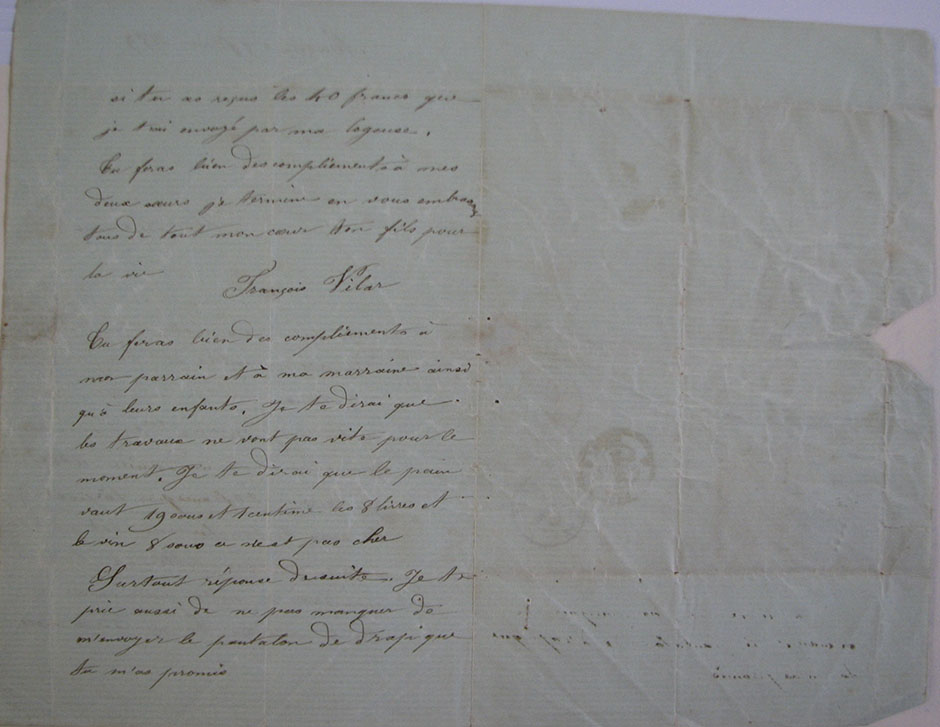 si tu as reçus les 40 francs que
je t'ai envoyé par ma logeuse.
Tu feras bien des compliements à mes
deux sœurs je termine en vous embrassant
tous de tout mon cœur ton fils pour
la vie
François Vilar
Tu feras bien des compliements à
mon parrain et à ma marraine ainsi
qu'à leurs enfants. Je te dirai que
les travaux ne vont pas vite pour le
moment. Je te dirai que le pain
vaut 19 sous et 1 centime les 8 livres et
le vin 8 sous ce n'est pas cher
Surtout réponse desuite. Je te
prie aussi de ne pas manquer de
m'envoyer le pantalon de drap que
tu m'as promis